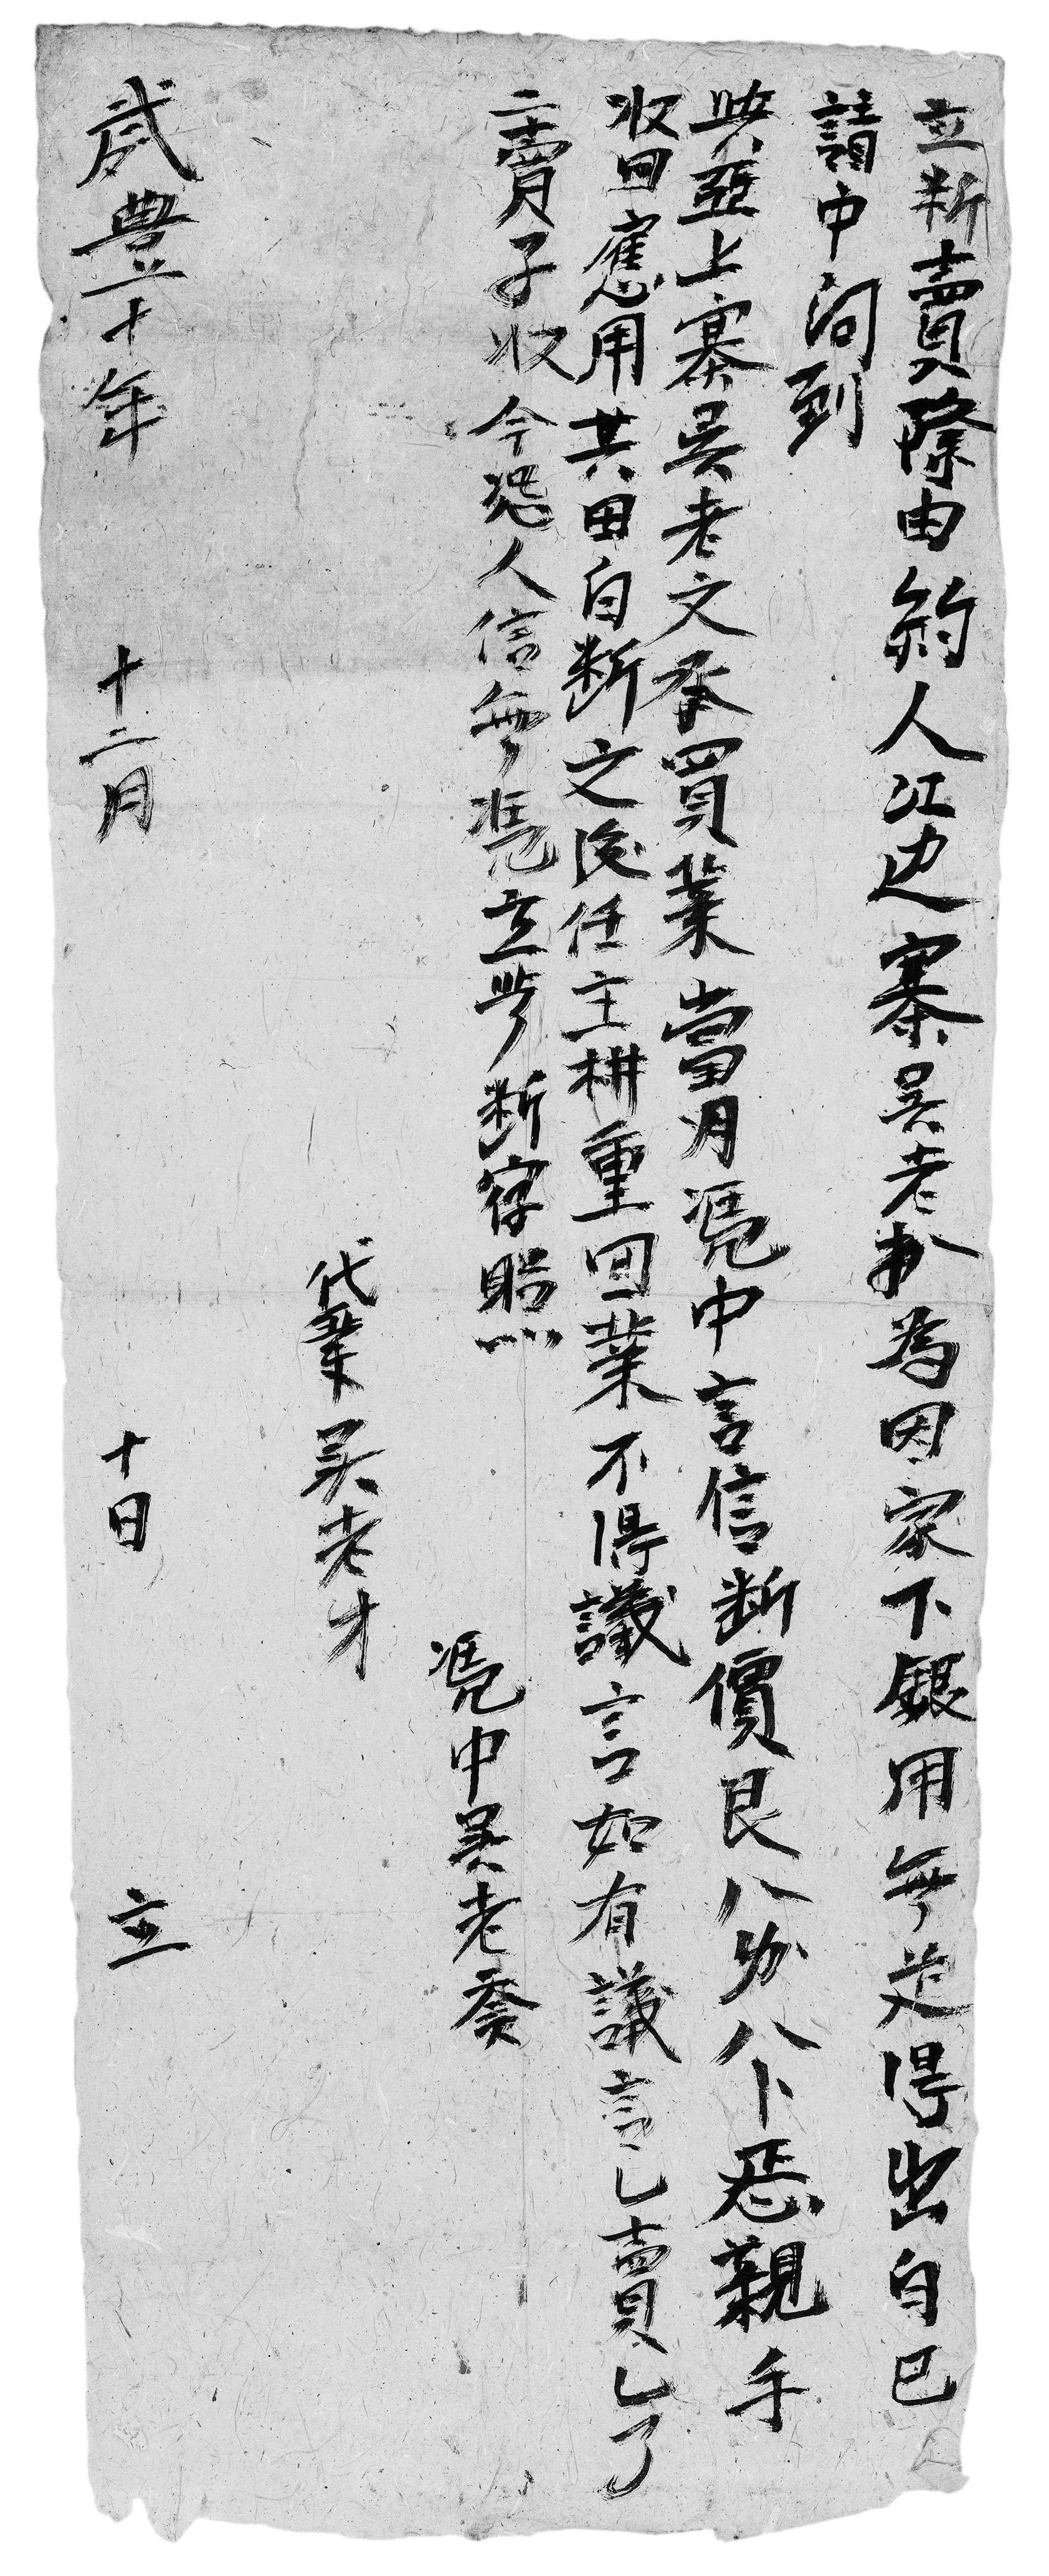 立断賣除由約人江边寨吴老扒為因家下銀用無足得出自己
請中问到
與亚上寨吴老文承買業當月凴中言信断價艮八分八卜恁親手
收回應用其田自断之後任主耕重回業不得議言如有議言乚賣乚了
二賣子收今恐人信無凴立此断字照
凴中吴老
代筆吴老才
咸豊十年 十二月 十日 立